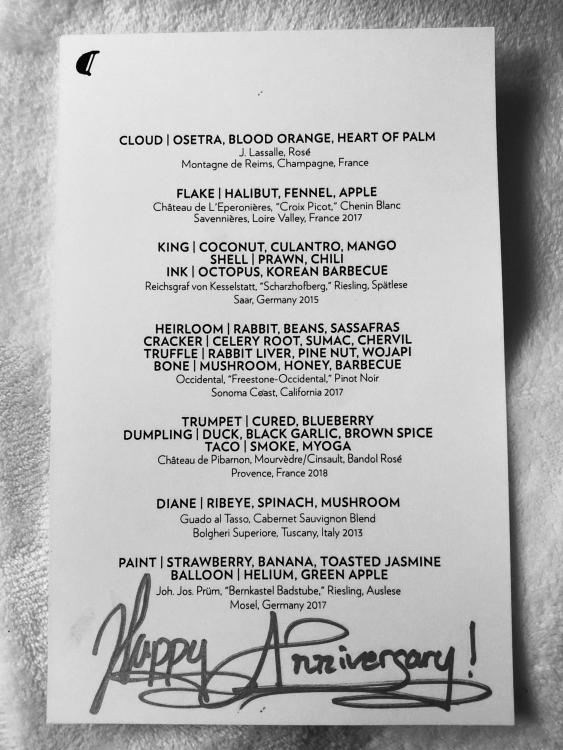 CLOUD | OSETRA, BLOOD ORANGE, HEART OF PALM
J. Lassalle, Rosé
Montagne de Reims, Champagne, France
FLAKE | HALIBUT, FENNEL, APPLE
Château de L'Eperonières, "Croix Picot," Chenin Blanc
Savennières, Loire Valley, France 2017
KING | COCONUT, CULANTRO, MANGO
SHELL | PRAWN, CHILI
INK | OCTOPUS, KOREAN BARBECUE
Reichsgraf von Kesselstatt, "Scharzhofberg," Riesling, Spätlese
Saar, Germany 2015
HEIRLOOM | RABBIT, BEANS, SASSAFRAS
CRACKER | CELERY ROOT, SUMAC, CHERVIL
TRUFFLE | RABBIT LIVER, PINE NUT, WOJAPI
BONE | MUSHROOM, HONEY, BARBECUE
Occidental, "Freestone-Occidental," Pinot Noir
Sonoma Coast, California 2017
TRUMPET | CURED, BLUEBERRY
DUMPLING | DUCK, BLACK GARLIC, BROWN SPICE
TACO | SMOKE, MYOGA
Château de Pibarnon, Mourvèdre/Cinsault, Bandol Rosé
Provence, France 2018
DIANE | RIBEYE, SPINACH, MUSHROOM
Guado al Tasso, Cabernet Sauvignon Blend
Bolgheri Superiore, Tuscany, Italy 2013
PAINT | STRAWBERRY, BANANA, TOASTED JASMINE
BALLOON | HELIUM, GREEN APPLE
Joh. Jos. Prüm, "Bernkastel Badstube," Riesling, Auslese
Mosel, Germany 2017
Happy Anniversary!